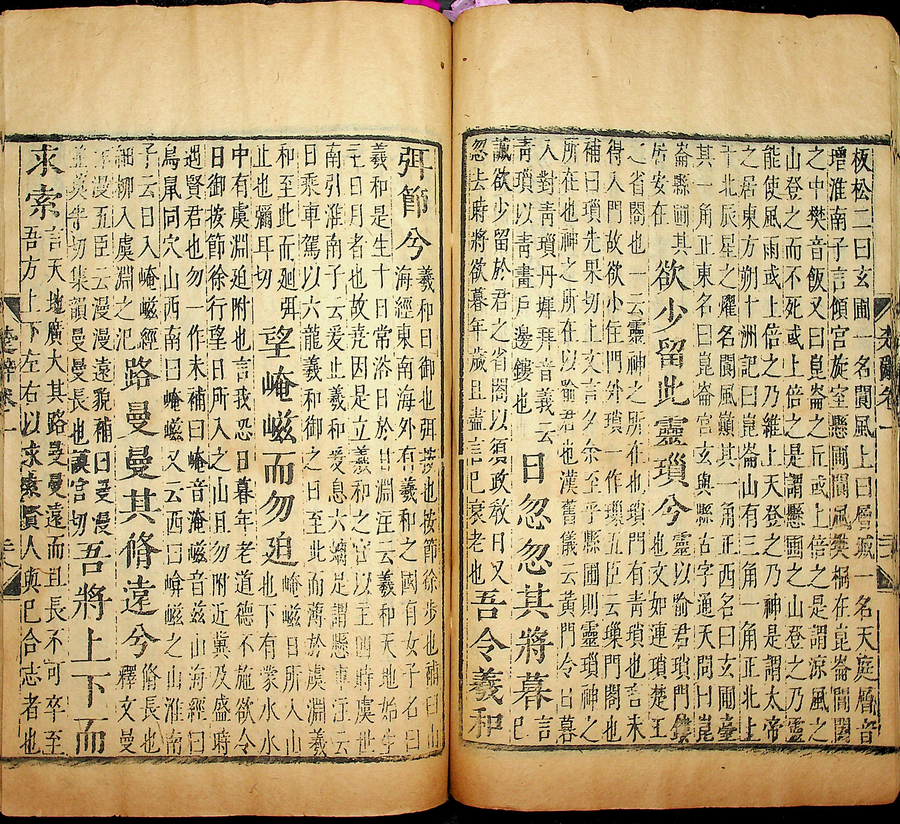 板松二曰玄圃一名閬風上曰層城一名天庭層音
增淮南子言傾宮旋室懸圃閬風樊桐在崑崙閶闔
之中樊音飯又曰崑崙之丘或上倍之是謂涼風之
山登之而不死或上倍之是謂懸圃之山登之乃靈
能使風雨或上倍之乃維上天登之乃神是謂太帝
之居東方朔十洲記曰崑崙山有三角一角正北上
干北辰星之燿名閬風巔其一角正西名曰玄圃臺
其一角正東名曰崑崙宮玄與縣古字通天問曰崑
崙縣圃其
居安在
欲少留此靈瑣兮
靈以喻君瑣門鏤
也文如連瑣楚王
之省閤也一云靈神之所在也瑣門有青瑣也言未
得入門故欲小住門外瑣一作璅五臣云璅門閤也
補曰瑣先果切上文言夕余至乎縣圃則靈瑣神之
所在也神之所在以喻君也漢舊儀云黃門令日暮
入對青瑣丹墀拜音義云
青瑣以青畫戶邊鏤也
日忽忽其將暮
言
已
誠欲少留於君之省閤以須政教日又
忽去時將欲暮年歲且盡言已衰老也
吾令羲和
楚辭卷一
弭節兮
羲和日御也弭按也按節徐步也補曰山
海經東南海外有羲和之國有女子名曰
羲和是生十日常浴日於甘淵注云羲和天地始生
主日月者也故堯因是立羲和之官以主四時虞世
南引淮南子云爰止羲和爰息六螭是謂懸車注云
日乘車駕以六龍羲和御之日至此而薄於虞淵羲
和至此而迴弭
止也彌耳切
望崦嵫而勿迫
崦嵫日所入山
也下有蒙水水
中有虞淵迫附也言我恐日暮年老道德不施欲令
日御按節徐行望日所入之山且勿附近冀及盛時
遇賢君也勿一作未補曰崦音淹嵫音茲山海經曰
鳥鼠同穴山西南曰崦嵫又云西曰崦嵫之山淮南
子云日入崦嵫經
細柳入虞淵之汜
路曼曼其脩遠兮
脩長也
釋文曼
作漫五臣云漫漫遠貌補曰曼漫
並莫半切集韻曼曼長也謨官切
吾將上下而
求索
言天地廣大其路曼曼遠而且長不可卒至
吾方上下左右以求索賢人與已合志者也
楚辭卷一